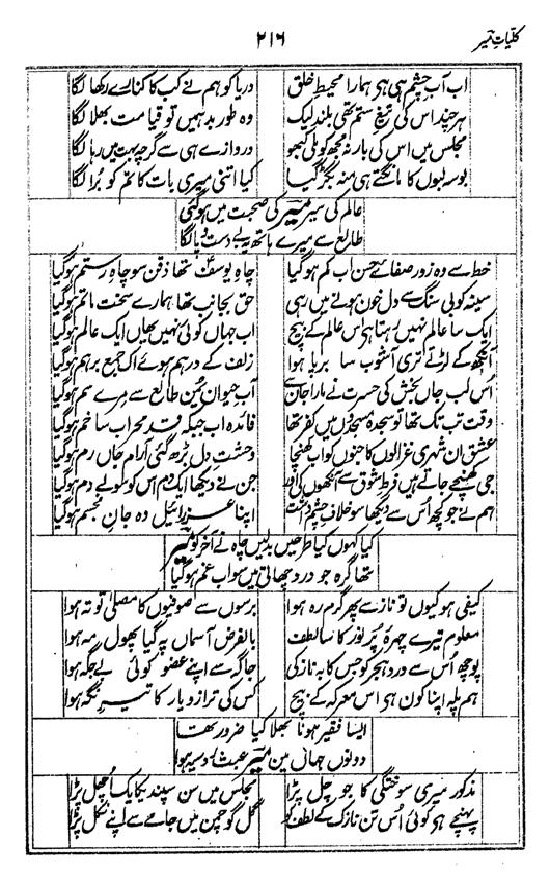 کلیاتِ میر
۲۱۶
اب آبِ چشم ہی ہی ہمارا محیطِ خلق دریا کو ہم نے کب کا کنارے رکھا لگا
ہر چند اس کی تیغِ ستم تھی بلند لیک وہ طور بد ہمیں تو قیامت بھلا لگا
مجلس میں اس کی بار نہ مجھ کو ملی کبھو دروازے ہی سے گرچہ بہت میں رہا لگا
بوسہ لبوں کا مانگتے ہی منہ بگڑ گیا کیا اتنی میری بات کا تم کو بُرا لگا
عالم کی سیر میر کی صحبت میں ہو گئی
طالع سے میرے ہاتھ یہ بے دست و پا لگا
خط سے وہ زور صفائے حسن اب کم ہو گیا چاہِ یوسف تھا ذقن سو چاہِ رستم ہو گیا
سینہ کوبی سنگ سے دل خون ہونے میں رہی حق بجانب تھا ہمارے سخت ماتم ہو گیا
ایک سا عالم نہیں رہتا ہی اس عالم کے بیچ اب جہاں کوئی نہیں یھاں ایک عالم ہو گیا
آنکھ کے لڑتے تری آشوب سا برپا ہوا زلف کے درہم ہوئے اک جمع برہم ہو گیا
اس لب جاں بخش کی حسرت نے مارا جان سے آبِ حیوان یُمنِ طالع سے مرے سم ہو گیا
وقت تب تک تھا تو سجدہ مسجدوں میں کفر تھا فائدہ اب جبکہ قد محراب سا خم ہو گیا
عشق ان شہری غزالوں کا جنوں کو اب کھنچا وحشتِ دل بڑھ گئی آرامِ جاں رم ہو گیا
جی کھنچے جاتے ہیں فرطِ شوق سے آنکھوں کی اور جن نے دیکھا ایک دم اس کو سو بے دم ہو گیا
ہم نے جو کچھ اُس سے دیکھا سو خلافِ چشم داشت اپنا عزرائیل وہ جانِ مجسم ہو گیا
کیا کہوں کیا طرحیں بدلیں چاہ نے آخر کو میر
تھا گرہ جو درد چھاتی میں سو اب غم ہو گیا
کیفی ہو کیوں تو ناز سے پھر گرمِ رہ ہوا برسوں سے صوفیوں کا مصلیٰ تو تہ ہوا
معلوم تیرے چہرۂ پُر نور کا سا لطف بالفرض آسماں پر گیا پھول مہ ہوا
پوچھ اُس سے دردِ ہجر کو جس کا بہ نازکی جاگہ سے اپنے عضو کوئی بے جگہ ہوا
ہم پلہ اپنا کون ہی اس معرکہ کے بیچ کس کی ترازو یار کا تیرِ نگہ ہوا
ایسا فقیر ہونا بھلا کیا ضرور تھا
دونوں جہان میں میر عبث رو سیہ ہوا
مذکور میری سوختگی کا جو چل پڑا مجلس میں سن سپند یکایک اُچھل پڑا
پہنچے ہی کوئی اُس تنِ نازک کے لطف کو گل گو چمن میں جامے سے اپنے نکل پڑا